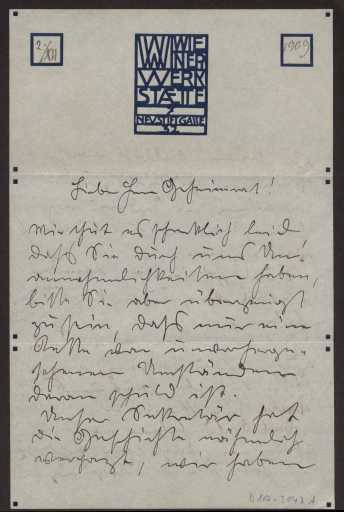 2/XII
1909
WIENER
WERK
STÆTTE
NEUSTIFTGASSE
32
Lieber Herr Geheimrat!
Mir thut es schrecklich leid
daß Sie durch uns Un-
annehmlichkeiten haben,
bitte Sie aber überzeugt
zu sein, daß nur eine
Kette von unvorherge-
sehenen Umständen
daran schuld ist.
Unser Sekretär hat
die Geschichte nähmlich
verpatzt, wir haben